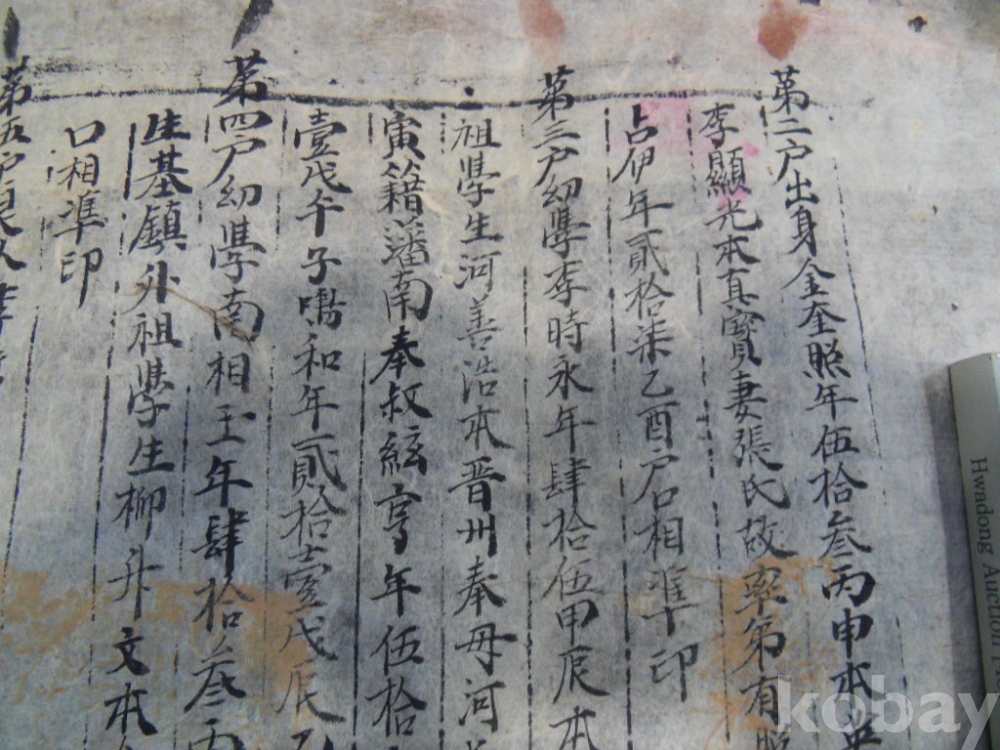 第二戶出身金奎照年伍拾叄丙申本
李顯光本真寶妻張氏故率第有
占伊年貳拾柒乙酉戶口相準印
第三戶幼學李時永年肆拾伍甲辰本
祖學生河善浩本晋州奉母河
寅籍潘南奉叔絃亨年伍拾
壹戊午子鳴和年貳拾壹戊辰
第四戶幼學南相玉年肆拾叄丙
生基鎮外祖學生柳升文本
口相準印
第五戶
Hwadong Auction
kobay